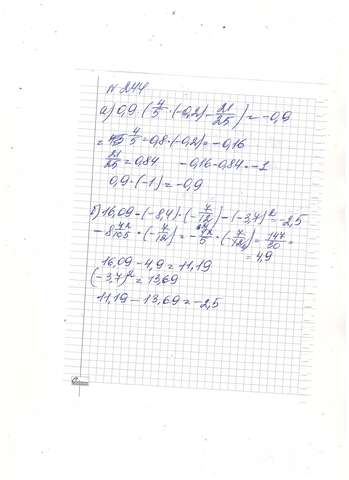 № 244
а) 0,9 · (4/5 · (-0,2) - 21/25) = -0,9
= 4/5 = 0,8 · (-0,2) = -0,16
21/25 = 0,84 -0,16-0,84 = -1
0,9 · (-1) = -0,9
б) 16,09 - (-8,4) · (-7/12) - (-3,7)² = -2,5
-8 4/10 · (-7/12) = -42/5 · (-7/12) = 147/30 =
= 4,9
16,09 - 4,9 = 11,19
(-3,7)² = 13,69
11,19 - 13,69 = -2,5